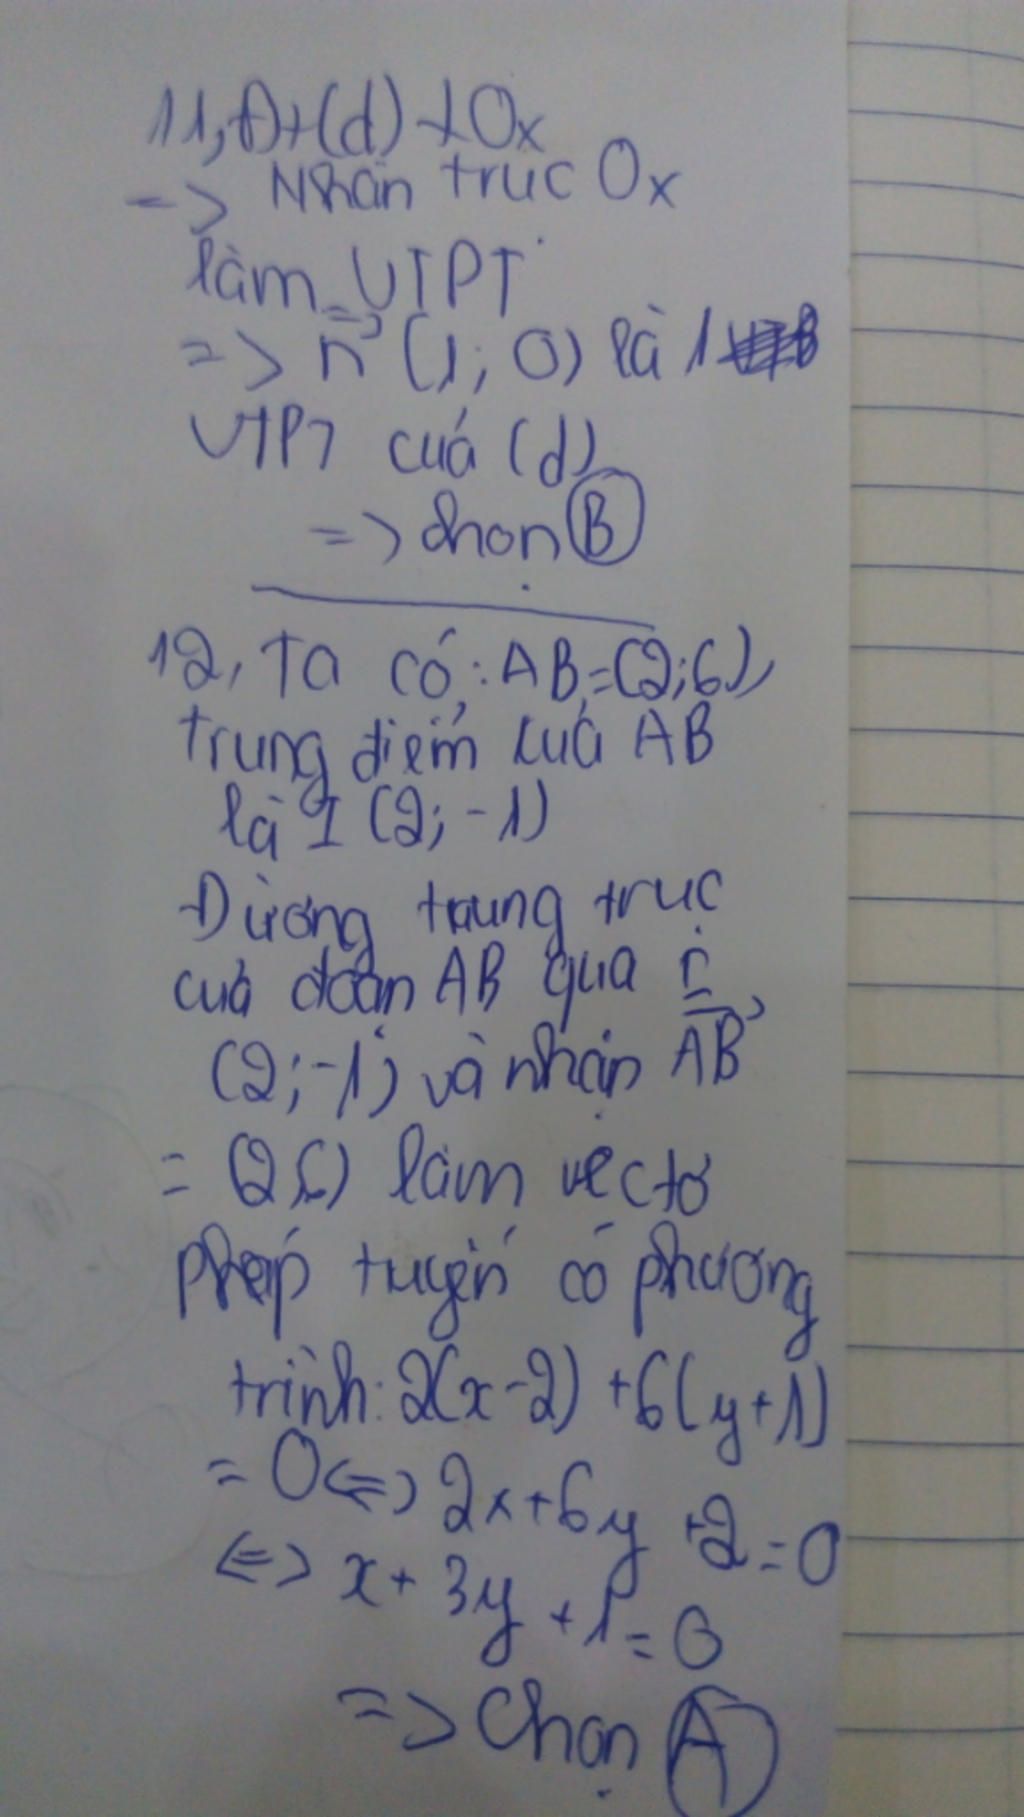 11, Đt (d) ⊥ Ox
=> Nhận trục Ox
làm VTPT
=> n (1; 0) là 1
VTPT của (d)
=> chọn B
12, Ta có: AB = (2;6),
trung điểm của AB
là I (2; -1)
Đường trung trực
của đoạn AB qua I
(2; -1) và nhận AB
= (2;6) làm vectơ
pháp tuyến có phương
trình: 2(x-2) + 6(y+1)
= 0 <=> 2x+6y +2=0
<=> x + 3y + 1 = 0
=> Chọn A